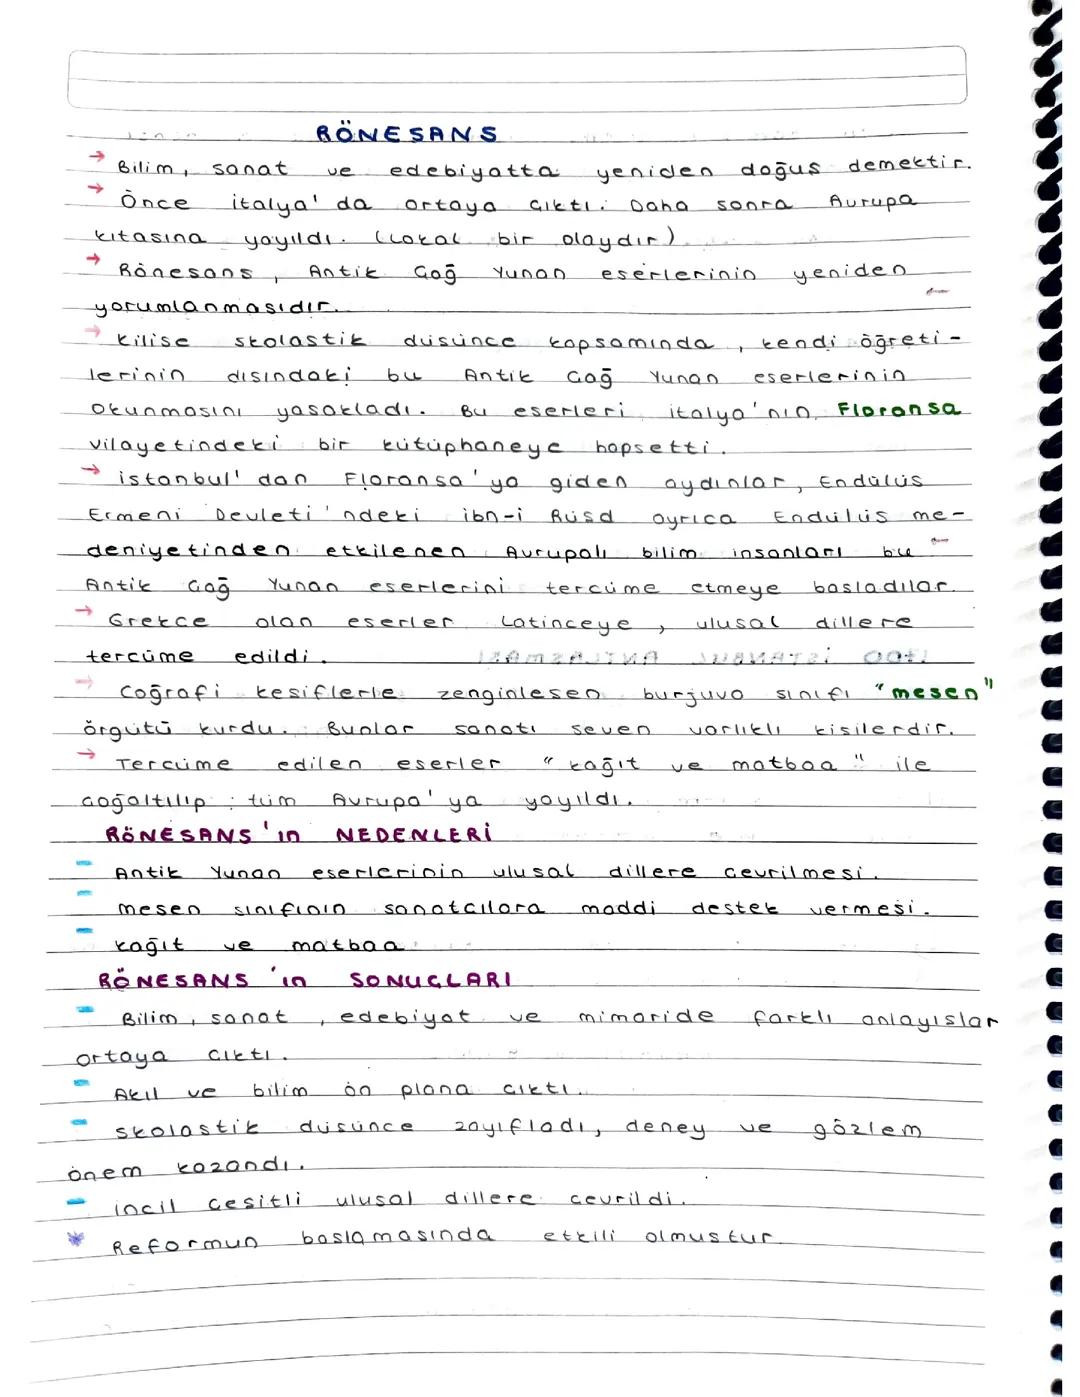 RÖNESANS
→ Bilim, sanat ve edebiyatta yeniden doğus demektir.
→ Önce italya'da ortaya cıktı. Daha sonra Avrupa
kıtasına yayıldı. (Lokal bir olaydır)
→ Rönesans, Antik Cağ Yunan eserlerinin yeniden
yorumlanmasıdır.
→ Kilise skolastik düsünce kapsamında, kendi öğreti-
lerinin dısındaki bu Antik Cağ Yunan eserlerinin
okunmasını yasakladı. Bu eserleri italya'nın Floransa
vilayetindeki bir kütüphaneye hapsetti.
→ istanbul'dan Floransa'ya giden aydınlar, Endülüs
Ermeni Devleti'ndeki ibn-i Rüsd ayrıca Endülüs me-
deniyetinden etkilenen Avrupalı bilim insanları bu
Antik Cağ Yunan eserlerini tercüme etmeye basladılar.
→ Grekce olan eserler Latinceye, ulusal dillere
tercüme edildi.
→ Coğrafi kesiflerle zenginlesen burjuva sınıfı "mesen"
örgütü kurdu. Bunlar sanatı seven varlıklı kisilerdir.
→ Tercüme edilen eserler "kağıt ve matbaa" ile
coğaltılıp; tüm Avrupa'ya yayıldı.
RÖNESANS'ın NEDENLERİ
- Antik Yunan eserlerinin ulusal dillere cevrilmesi.
- mesen sınıfının sanatcılara maddi destek vermesi.
- kağıt ve matbaa
RÖNESANS'ın SONUCLARI
- Bilim, sanat, edebiyat ve mimaride farklı anlayıslar
ortaya cıktı.
- Akıl ve bilim ön plana cıktı.
- skolastik düsünce zayıfladı, deney ve gözlem
önem kazandı.
- incil cesitli ulusal dillere cevrildi.
* Reformun baslamasında etkili olmustur.